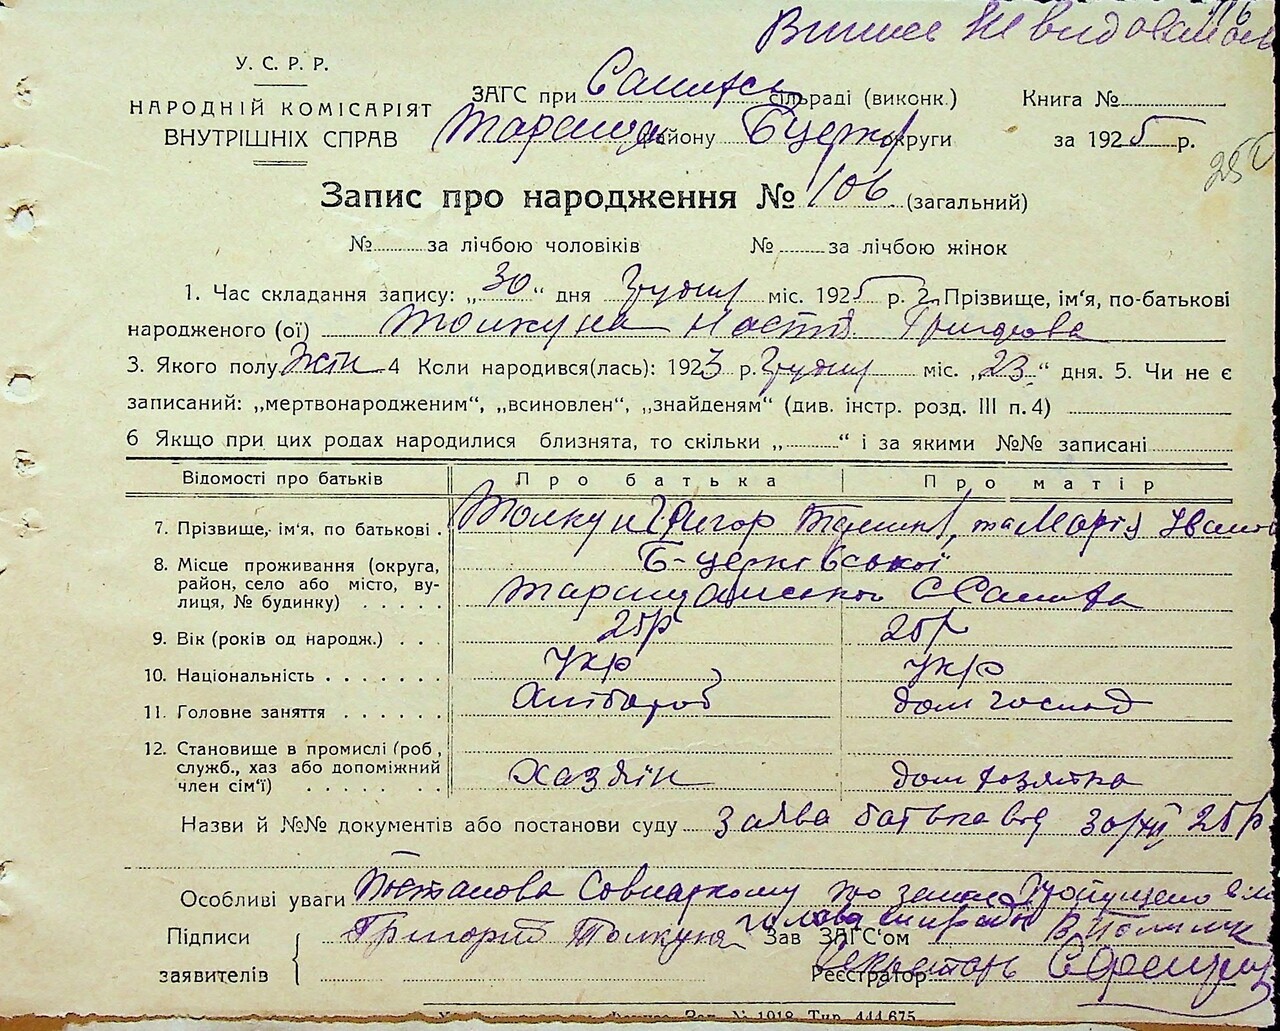 116
У. С. Р. Р.
НАРОДНІЙ КОМІСАРІЯТ
ВНУТРІШНІХ СПРАВ
ЗАГС при сільраді (виконк.)
району Б церкі округи
Книга №
за 1925 р.
250
Запис про народження № 106 (загальний)
№ за лічбою чоловіків № за лічбою жінок
1. Час складання запису: „30“ дня Грудня міс. 1925 р. 2. Прізвище, ім'я, по-батькові
народженого (ої) Толкуна Настя Григорова
3. Якого полу Жін 4 Коли народився(лась): 1923 р. Грудня міс. „23“ дня. 5. Чи не є
записаний: „мертвонародженим“, „всиновлен“, „знайденям“ (див. інстр. розд. III п. 4)
6 Якщо при цих родах народилися близнята, то скільки „ “ і за якими №№ записані
Відомості про батьків Про батька Про матір
7. Прізвище, ім'я, по батькові . Толкун Григор та Марія Іванов
8. Місце проживання (округа, Б-церківської
район, село або місто, ву-
лиця, № будинку) . . . . . Таращанського
9. Вік (років од народж.) . . . 25р 25р
10. Національність . . . . . . . укр укр
11. Головне заняття . . . . . . Хлібороб дом господ
12. Становище в промислі (роб,
служб., хаз або допоміжний Хазяїн дом хозяйка
член сім'ї) . . . . . .
Назви й №№ документів або постанови суду Заява батька від 30/XII 25р
Особливі уваги Постанова Совнаркому по заяві Пропущено
Підписи Григорій Толкун голова Зав ЗАГС'ом
заявителів Секретарь Реєстратор